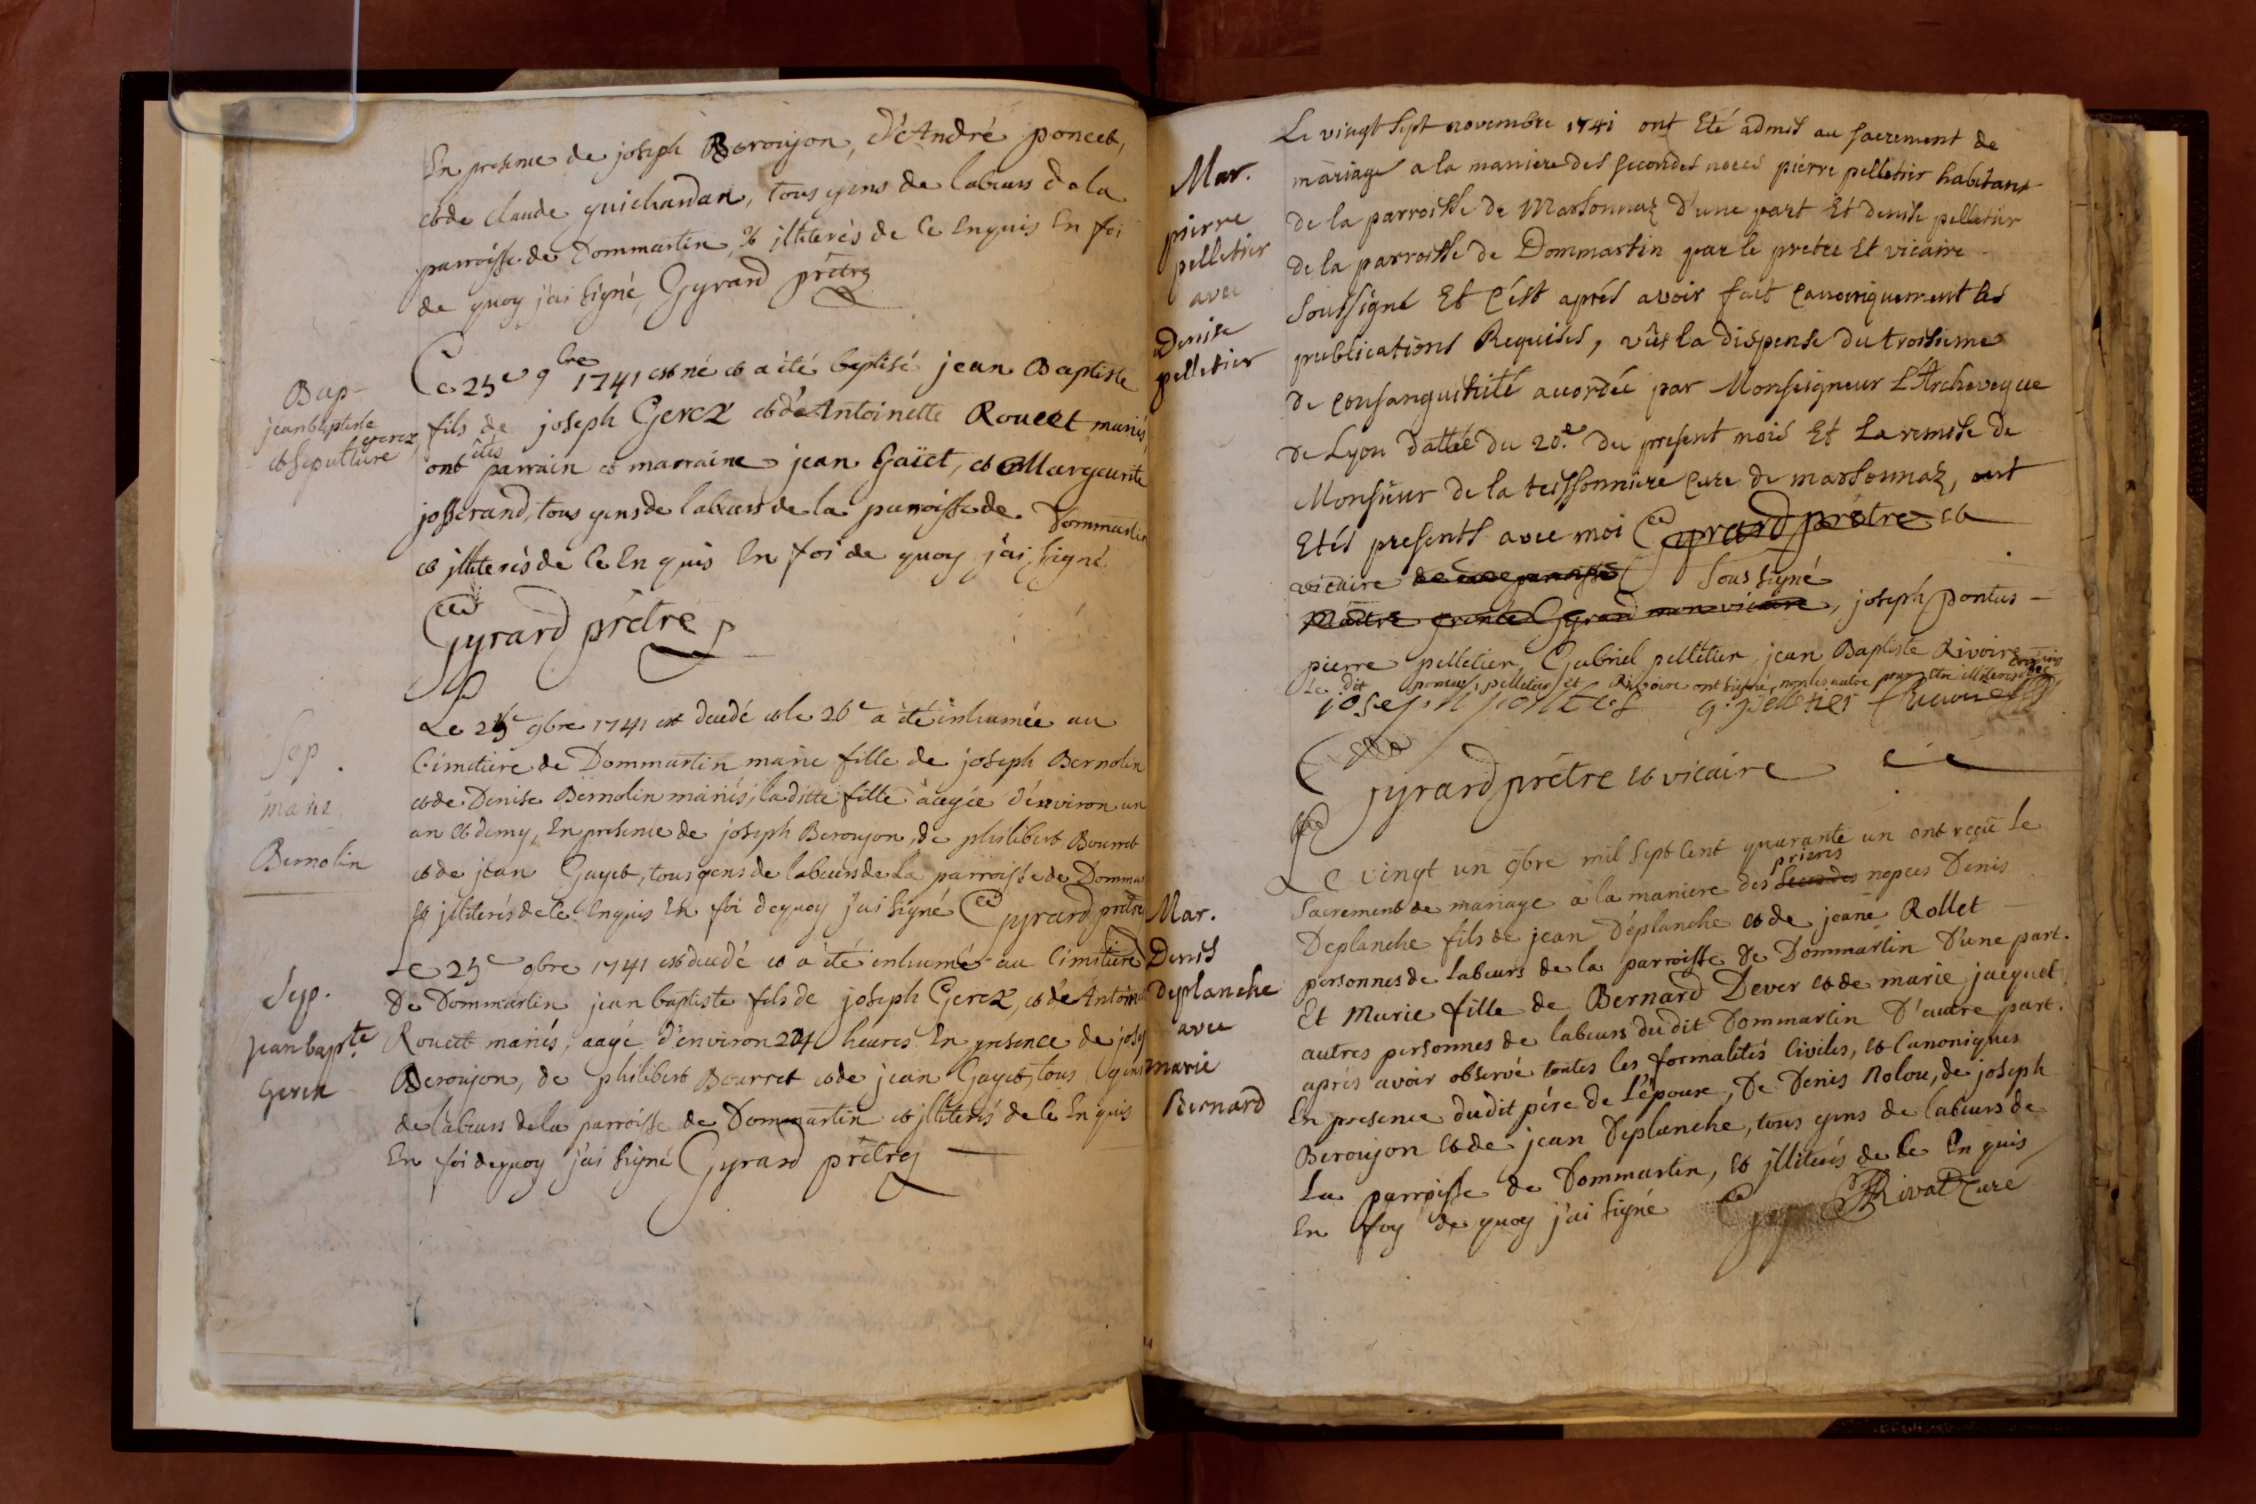 En presence de joseph Beroujon, d'Andre poncet,
et de claude guichardan, tous gens de labeurs de la
parroisse de Dommartin, & jlliterés de ce Enquis En foi
de quoy j'ai signé, Gyrard prêtre
Bap
jean baptiste
gerex
et sepulture
Ce 25e 9bre 1741 est né et a été baptisé jean Baptiste
fils de joseph Gerex et d'Antoinette Rouett mariés
ont étés parrain et marraine jean Gaïet, et Margeurite
josserand, tous gens de labeurs de la parroisse de Dommartin
et jlliterés de ce Enquis En foi de quoy j'ai signé
Gyrard prêtre
Sep.
marie
Bernolin
Le 25e 9bre 1741 est decedé et le 26e a été inhumée au
Cimetiere de Dommartin marie fille de joseph Bernolin
et de Denise Bernolin mariés, la ditte fille aagée d'environ un
an et demy, En presence de joseph Beroujon, de philibert Bourret
et de jean Gayet, tous gens de labeurs de La parroisse de Dommar
& jlliterés de ce Enquis En foi de quoy j'ai signé Gyrard prêtre
Sep.
jean bapte
Gerex
Le 25e 9bre 1741 est decedé et a été inhumé au Cimetiere
De Dommartin jean baptiste fils de joseph Gerex, et de Antoinett
Rouett mariés, aagé d'environ 24 heures En presence de josep
Beroujon, de philibert Bourret et de jean Gayet, tous gens
de labeurs de la parroisse de Dommartin et jlliterés de ce Enquis
En foi de quoy j'ai signé Gyrard prêtre
Mar.
pierre
pelletier
avec
Denise
pelletier
Le vingt sept novembre 1741 ont Eté admis au sacrement de
mariage a la maniere des secondes noces pierre pelletier habitant
de la parroisse de Marsonnaz d'une part Et denise pelletier
de la parroisse de Dommartin par le pretre Et vicaire
soussigné Et c'est aprés avoir fait canoniquement les
publications Requises, vûs la dispense du troisieme
de consanguinité accordée par Monseigneur L'Archeveque
de Lyon dattée du 20.e du present mois Et La remise de
Monsieur de la teissonniere Curé de marsonnaz, ont
Etés presents avec moi Gyrard prêtre et
vicaire soussigné
Gyrard mon vicaire, joseph pontus
pierre pelletier, Gabriel pelletier, jean Baptiste Rivoire
Le dit pontus, pelletier et Rivoire ont signé, non les autre pour être illiteres
joseph pontus g. pelletier Rivoire
Gyrard prêtre et vicaire
Mar.
Denis
Deplanche
avec
marie
Bernard
Le vingt un 9bre mil sept cent quarante un ont reçû Le
sacrement de mariage à la maniere des secondes prieres nopces Denis
Deplanche fils de jean Déplanche et de jeane Rollet
personnes de labeurs de la parroisse De Dommartin D'une part.
Et Marie fille de Bernard Dever et de marie jacquet
autres personnes de labeurs dudit Dommartin D'autre part.
aprés avoir observé toutes les formalités Civiles, et Canoniques
En presence dudit pére de L'épouse, De Denis Nolou, de joseph
Beroujon et de jean Deplanche, tous gens de labeurs de
La parroisse de Dommartin, et jlliterés de ce Enquis
En foy de quoy j'ai signé Rivat Curé